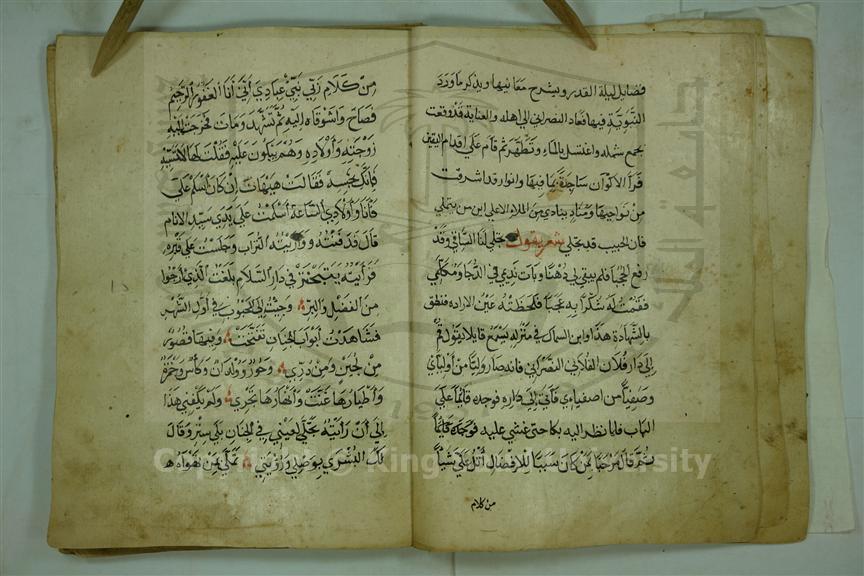 فضايل ليلة القدر ويشرح معانيها ويذكر ما ورد
النبوية فيها فعاد النصراني الي اهله والعناية قد وقعت
بجمع شمله واغتسل بالماء وتطهر ثم قام علي اقدام اليقين
فرأ الاكوان ساجدة بما فيها وانوار قد اشرقت
من نواحيها ومناد ينادي من الملاء الاعلي اين من يتملي
فان الحبيب قد تجلي شعر يقول تجلي لنا الساقي وقد
رفع الحجبا فلم يبقي لي ذهنا وبات نديمي في الدجا ومكلمي
فقمت له شكرا به عجبا فلحظته عين الاراده فنطق
بالشهادة هذا وابن السماك في منزله يسمع قايلا يقول قم
إلي دار فلان الفلاني النصراني فانه صار وليا من أوليأي
وصفيا من اصفياءي فأتي إلي داره فوجده قائما علي
الباب فلما نظر اليه بكا حتي غشي عليه فوجده
ثم قال مرحبا بمن كان سببا للافضال أتل علي شيأ
من كلام
من كلام ربي نبي عبادي أني أنا الغفور الرحيم
فصاح واشوقاه إليه ثم تشهد ومات فخرجت إليه
زوجته وأولاده وهم يبكون عليه فقلت لها لا تقربيه
فإنك نجسة فقالت هيهات إن كان أسلم علي
فأنا وأولادي الساعة أسلمت علي يدي سيد الانام
قال فدفنته وواريته التراب وجلست علي قبره
فرأيته يتبختر في دار السلام بلغت الذي أرجوا
من الفضل والبر وجئت إلي المحبوب في أول الشهر
فشاهدت أبواب الجنان تفتحت وفيها قصور
من لجين ومن در وحور وولدان وكأس وخمرة
وأطيارها غنت وأنهارها تجري ولم يكفني هذا
إلي أن رأيته تجلي لعيني في الجنان بلي ستر وقال
لك البشري بوصلي ورؤيتي تملي بمن تهواه
Copyright © King Saud University